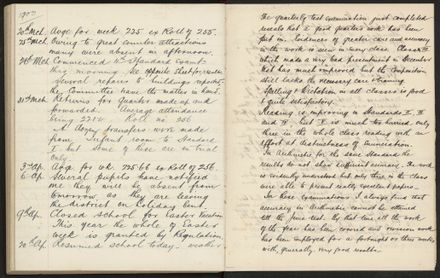 1900
20th Mch. Avge for week 225 ex Roll of 255.
23rd Mch. Owing to great counter attractions
many were absent in afternoon.
26th Mch. Commenced Standard exam
this morning. See opposite sheet for results
General repairs to buildings reported
the Committee have the matter in hand.
31st Mch. Returns for Quarter made up and
forwarded. Average attendance
being Roll no. 256
A dozen transfers were made
from Infant room to Standard
I, but some of these are on trial
only.
3rd Ap. Avge for wk. 225.66 ex Roll of 256.
6 Ap. Several pupils have notified
me they will be absent from
tomorrow as they are leaving
the district on Holiday trip.
9th Ap. Closed school for Easter Vacation
This year the whole of Easter
week is granted by Regulation
20th Ap. Resumed school today. weather
The quarterly test examination just completed
reveals that a good quarters work has been
put in. Evidences of greater care and accuracy
with the work is seen in every class. Class III
which made a very bad presentment in December
last has much improved but the Composition
still lacks the necessary care & training.
Spelling & Dictation in all classes is good
& quite satisfactory.
Reading is improving in Standards II, V
and VI. but IV is much too hurried, only
three in the whole class reading with an
effort at distinctness of enunciation.
In Arithmetic for the same Standard the
results do not show sufficient accuracy. The work
is evidently understood but only three in the class
were able to present really excellent papers.
In these examinations I always find that
accuracy in Arithmetic cannot be attained
till the June test. By that time all the work
of the year has been covered and revision work
has been employed for a fortnight or three weeks,
with generally very good results.